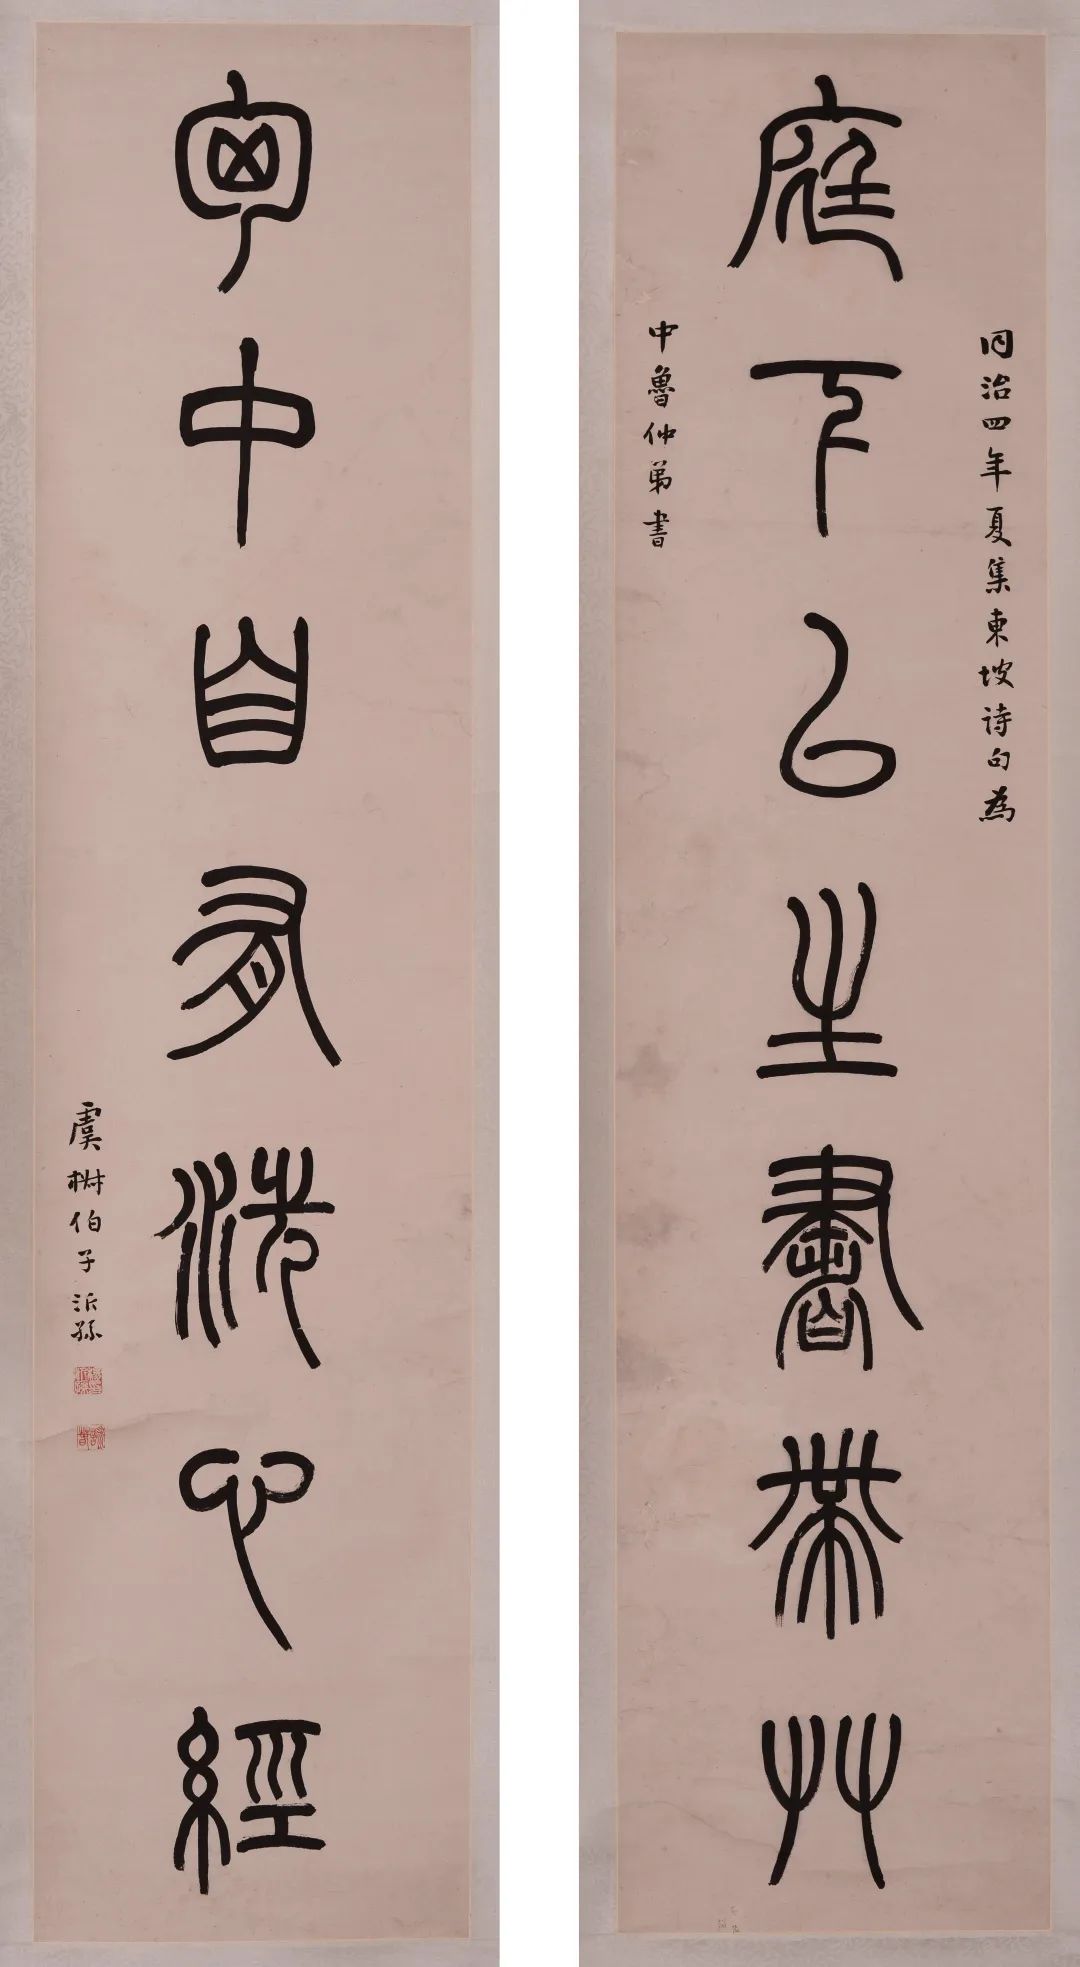 庭下已生書帶草
同治四年夏集東坡詩句為
中魯仲弟書
匈中自有洗心經
虞 伯子沂孫